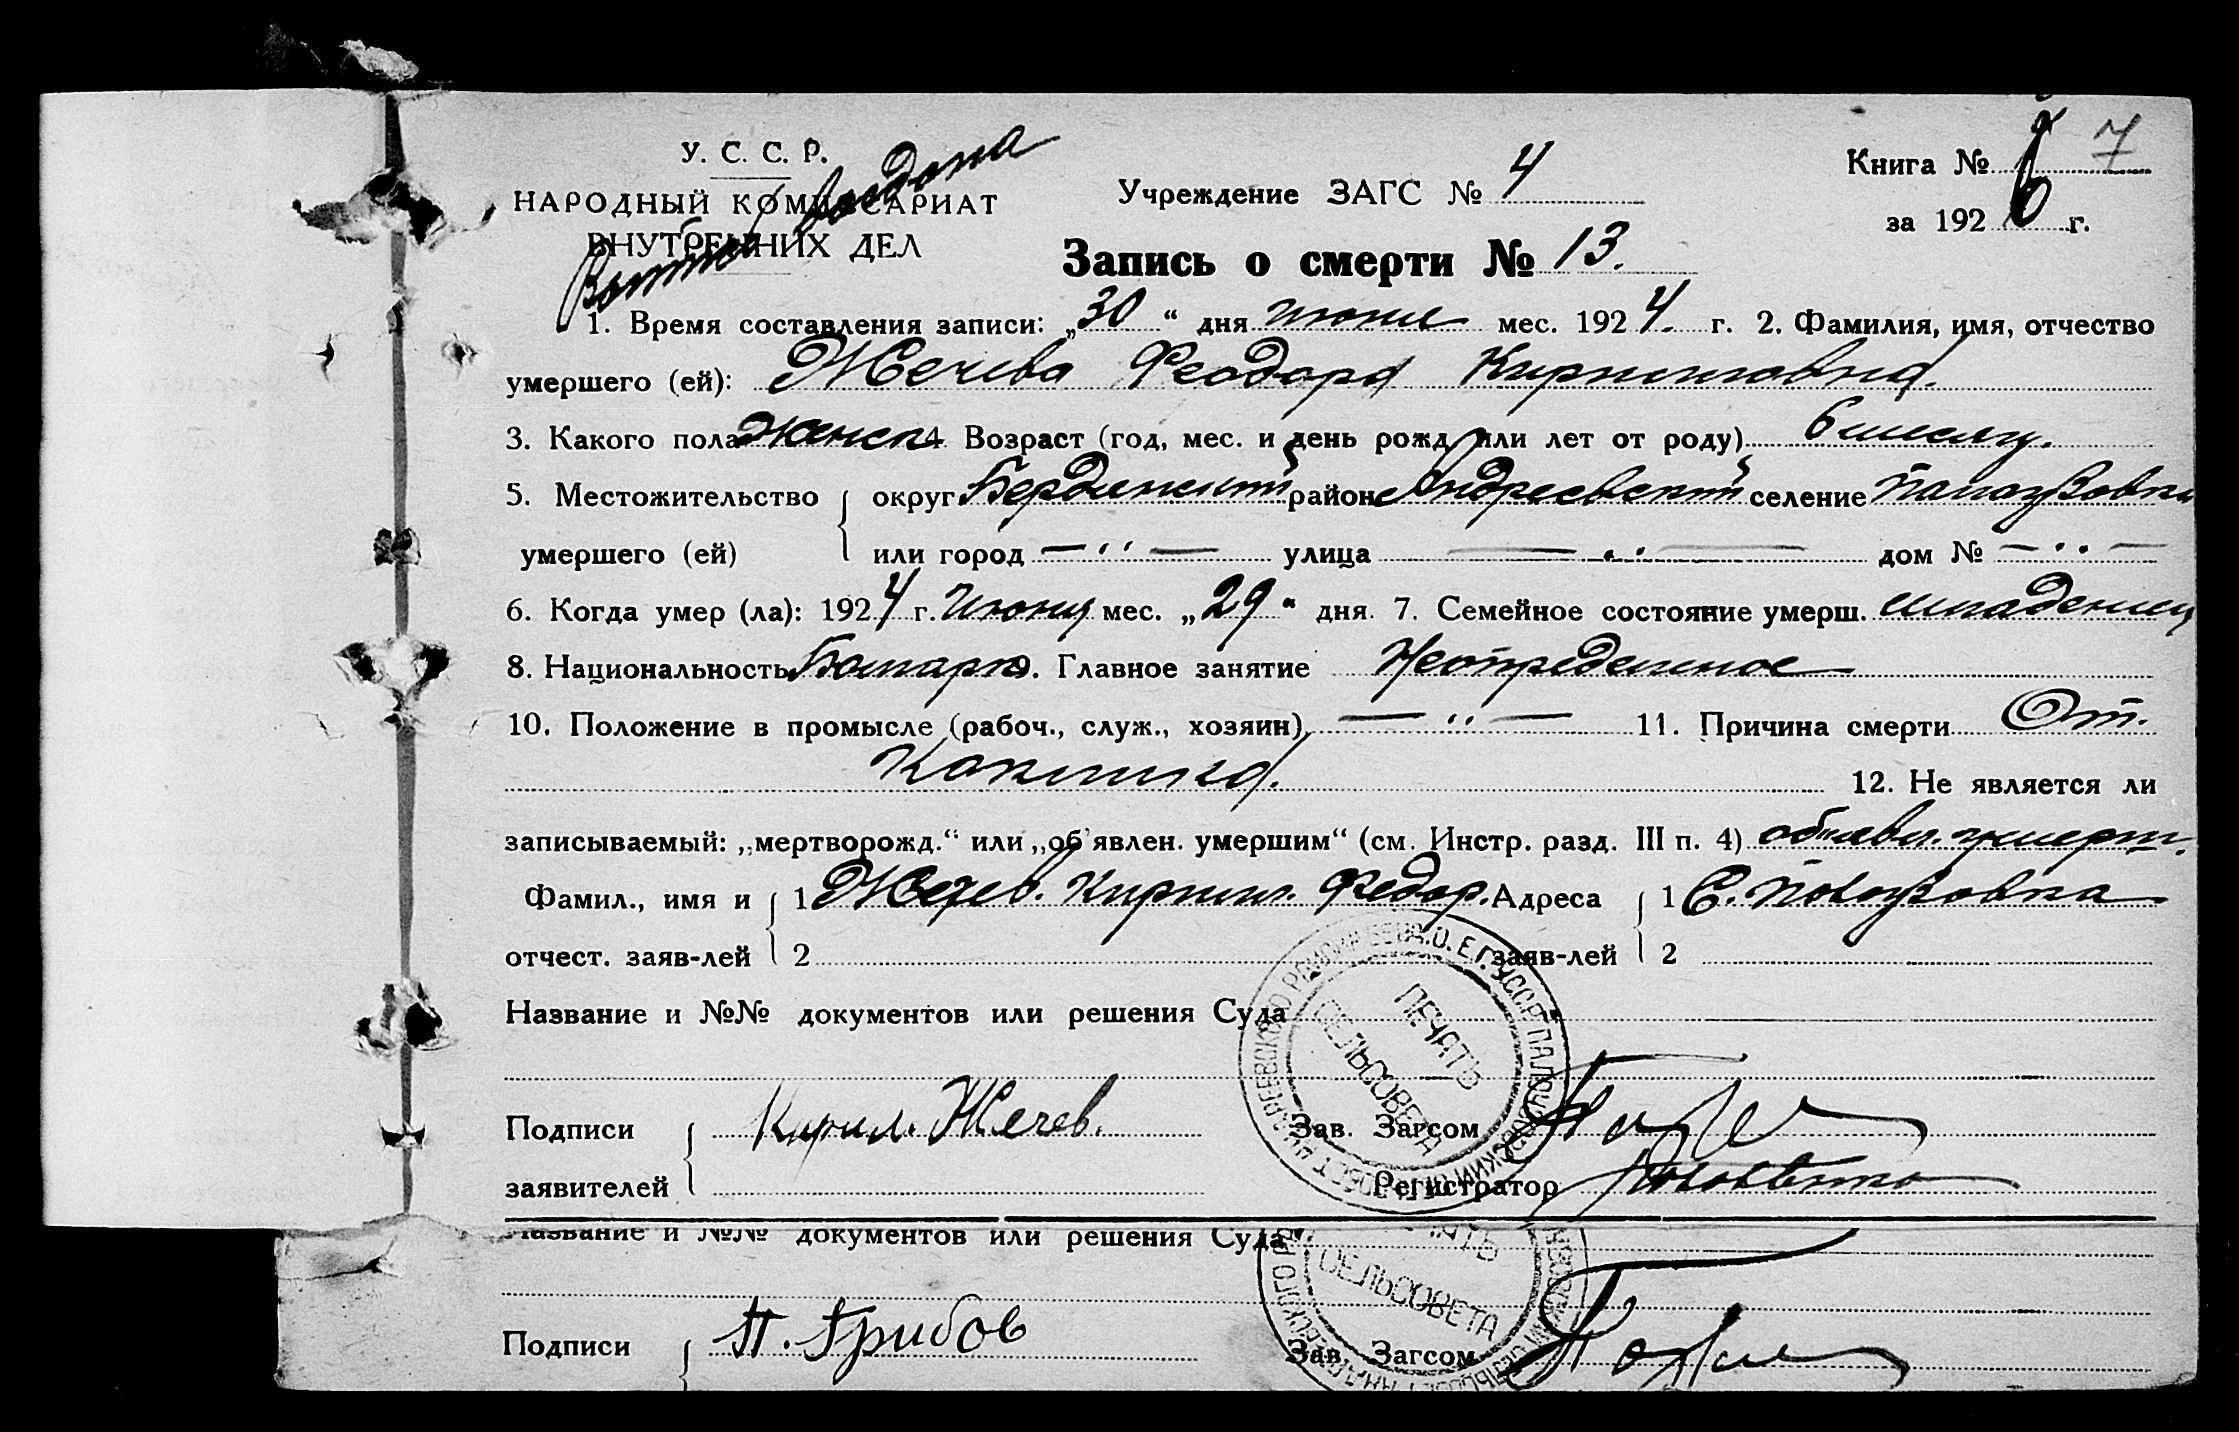 У. С. С. Р.
НАРОДНЫЙ КОМИССАРИАТ
ВНУТРЕННИХ ДЕЛ
Учреждение ЗАГС № 4
Книга № 7
за 1926 г.
Запись о смерти № 13.
1. Время составления записи: „30“ дня июня мес. 1924. г. 2. Фамилия, имя, отчество
умершего (ей): Жечева Феодора Кирилловна.
3. Какого пола женск. 4. Возраст (год, мес. и день рожд. или лет от роду) 6 месяц.
5. Местожительство округ Бердянский район Андреевский селение Палаузовка
умершего (ей) или город — — улица — — дом № — —
6. Когда умер (ла): 1924 г. Июня мес. „29“ дня. 7. Семейное состояние умерш. младенец
8. Национальность Болгарка 9. Главное занятие Неопределеное
10. Положение в промысле (рабоч., служ., хозяин) — — 11. Причина смерти От.
Коклюша. 12. Не является ли
записываемый: „мертворожд.“ или „об'явлен. умершим“ (см. Инстр. разд. III п. 4) об'явл. умерш.
Фамил., имя и 1 Жечев. Кирилл. Федор. Адреса 1 С. Палаузовка
отчест. заяв-лей 2 заяв-лей 2
Название и №№ документов или решения Суда
ПЕЧАТЬ
СЕЛЬСОВЕТА
Подписи Кирил. Жечев. Зав. Загсом
заявителей Регистратор
Название и №№ документов или решения Суда
СЕЛЬСОВЕТА
Подписи П. Грибов Зав. Загсом